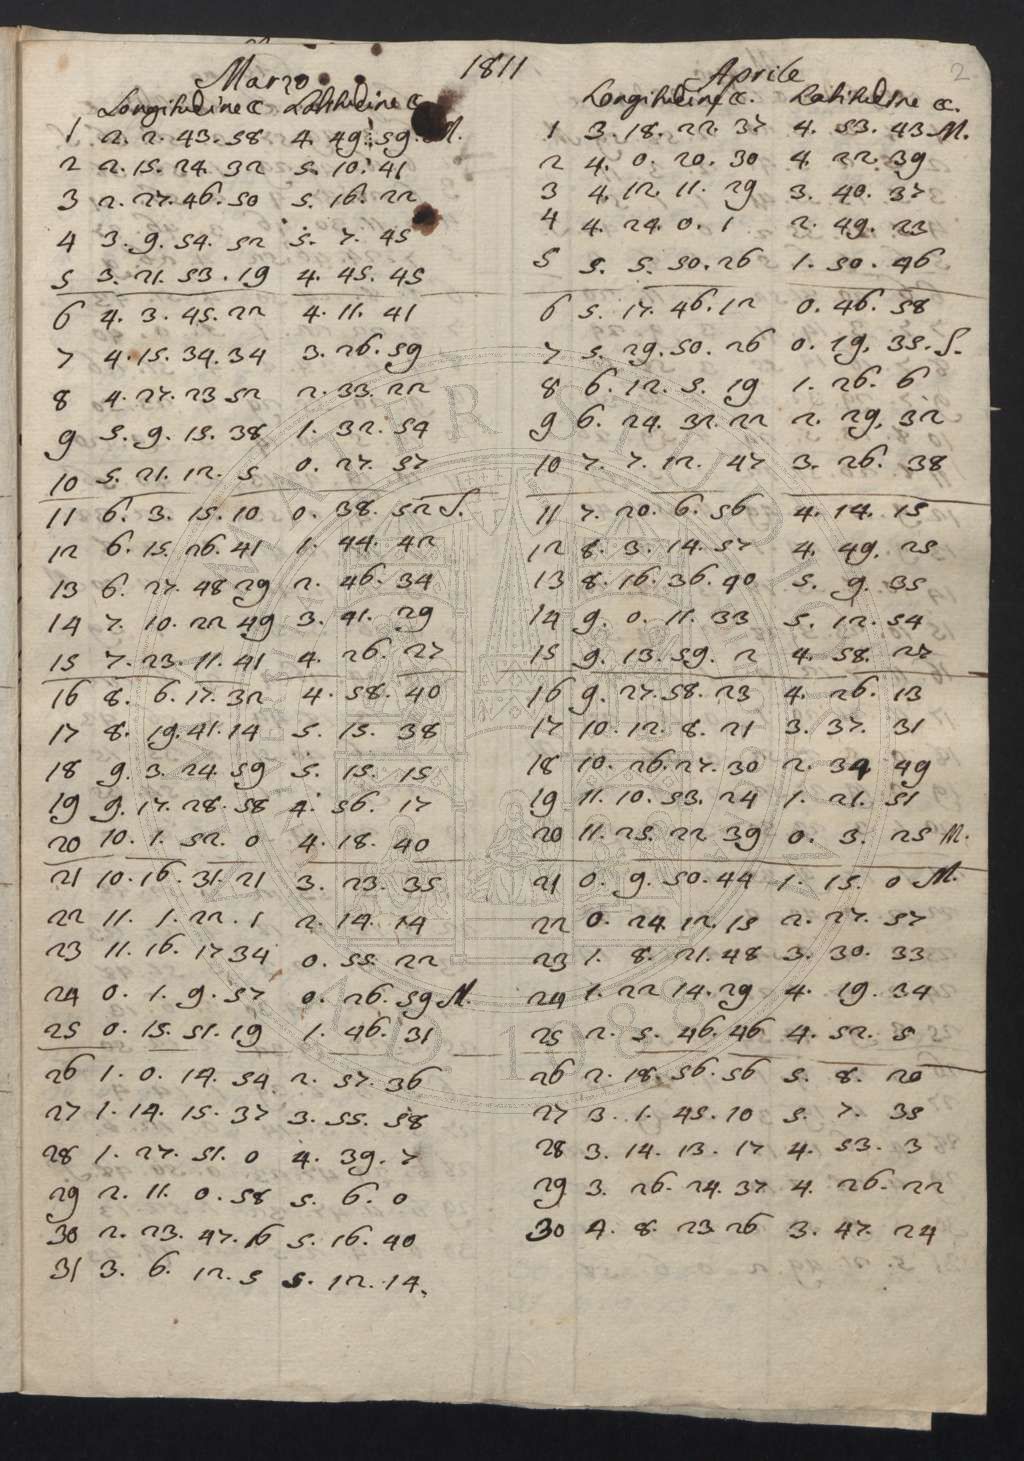 1811
2
Marzo
Longitudine ☾. Latitudine ☾
1 2. 2. 43. 58 4. 49. 59. M.
2 2. 15. 24. 32 5. 10. 41
3 2. 27. 46. 50 5. 16. 22
4 3. 9. 54. 52 5. 7. 45
5 3. 21. 53. 19 4. 45. 45
6 4. 3. 45. 22 4. 11. 41
7 4. 15. 34. 34 3. 26. 59
8 4. 27. 23 52 2. 33. 22
9 5. 9. 15. 38 1. 32. 54
10 5. 21. 12. 5 0. 27. 57
11 6. 3. 15. 10 0. 38. 52 S.
12 6. 15. 26. 41 1. 44. 42
13 6. 27. 48 29 2. 46. 34
14 7. 10. 22 49 3. 41. 29
15 7. 23. 11. 41 4. 26. 27
16 8. 6. 17. 32 4. 58. 40
17 8. 19. 41. 14 5. 15. 38
18 9. 3. 24. 59 5. 15. 15
19 9. 17. 28. 58 4. 56. 17
20 10. 1. 52. 0 4. 18. 40
21 10. 16. 31. 21 3. 23. 35
22 11. 1. 22. 1 2. 14. 14
23 11. 16. 17 34 0. 55. 22
24 0. 1. 9. 57 0. 26. 59 M.
25 0. 15. 51. 19 1. 46. 31
26 1. 0. 14. 54 2. 57. 36
27 1. 14. 15. 37 3. 55. 58
28 1. 27. 51. 0 4. 39. 7
29 2. 11. 0. 58 5. 6. 0
30 2. 23. 47. 16 5. 16. 40
31 3. 6. 12. 5 5. 12. 14.
Aprile
Longitudine ☾. Latitudine ☾.
1 3. 18. 22. 37 4. 53. 43 M.
2 4. 0. 20. 30 4. 22. 39
3 4. 12. 11. 29 3. 40. 37
4 4. 24. 0. 1 2. 49. 23
5 5. 5. 50. 26 1. 50. 46
6 5. 17. 46. 12 0. 46. 58
7 5. 29. 50. 26 0. 19. 35. S.
8 6. 12. 5. 19 1. 26. 6
9 6. 24. 32. 22 2. 29. 32
10 7. 7. 12. 47 3. 26. 38
11 7. 20. 6. 56 4. 14. 15
12 8. 3. 14. 57 4. 49. 25
13 8. 16. 36. 40 5. 9. 35
14 9. 0. 11. 33 5. 12. 54
15 9. 13. 59. 2 4. 58. 27
16 9. 27. 58. 23 4. 26. 13
17 10. 12. 8. 21 3. 37. 31
18 10. 26. 27. 30 2. 34 49
19 11. 10. 53. 24 1. 21. 51
20 11. 25. 22 39 0. 3. 25 M.
21 0. 9. 50. 44 1. 15. 0 M.
22 0. 24. 12. 15 2. 27. 57
23 1. 8. 21. 48 3. 30. 33
24 1. 22 14. 29 4. 19. 34
25 2. 5. 46. 46 4. 52. 5
26 2. 18. 56. 56 5. 8. 20
27 3. 1. 45. 10 5. 7. 35
28 3. 14. 13. 17 4. 53. 3
29 3. 26. 24. 37 4. 26. 22
30 4. 8. 23 26 3. 47. 24